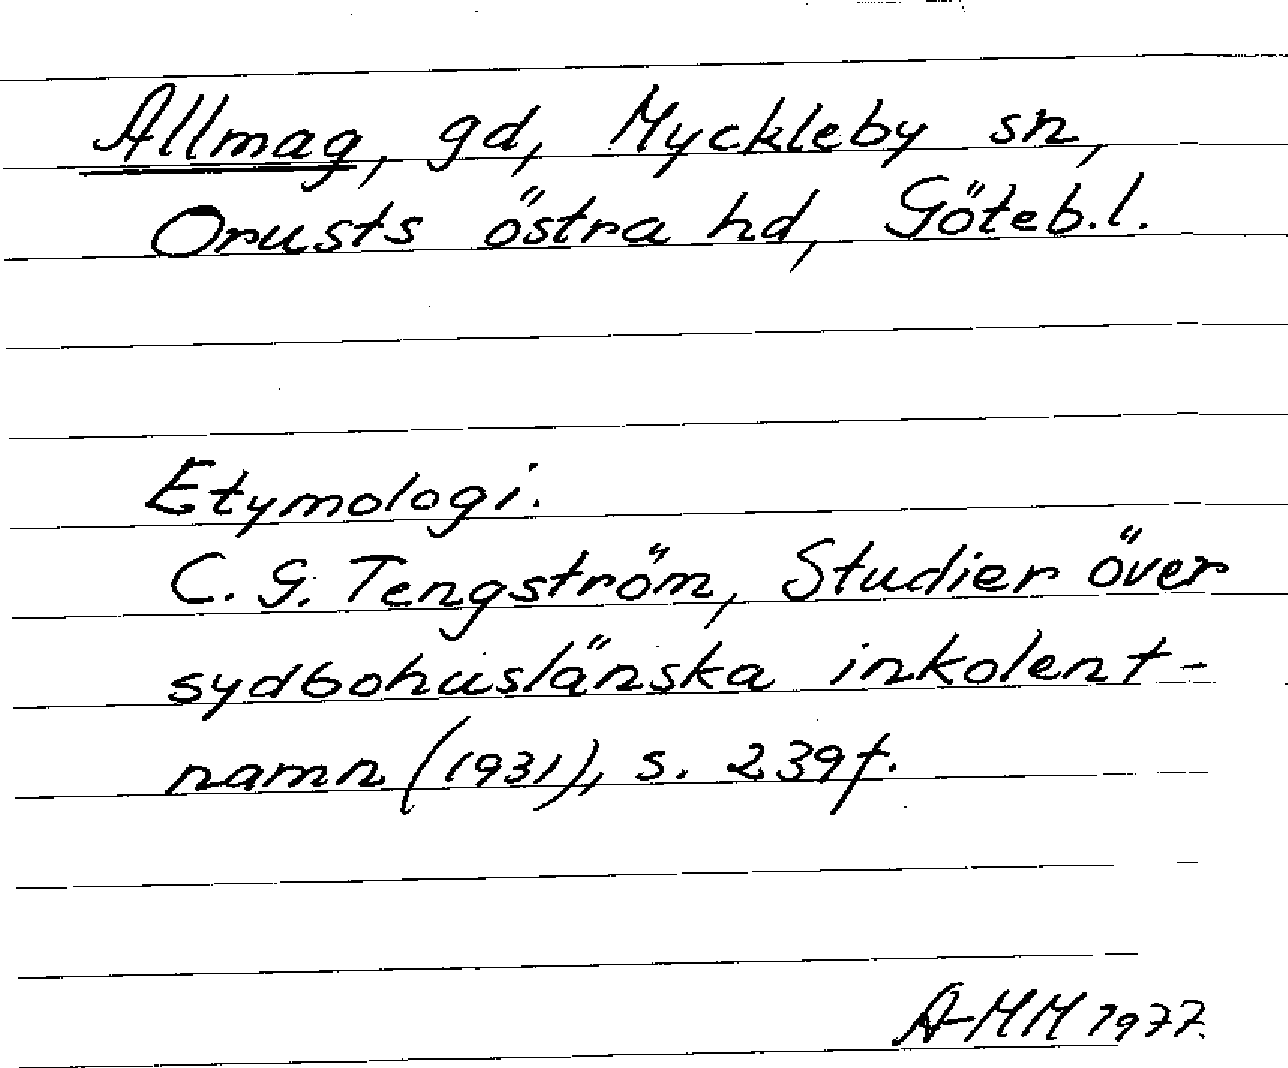 Allmag, gd, Myckleby sn,
Orusts östra hd, Göteb.l.
Etymologi.
C. G. Tengström, Studier över
sydbohuslänska inkolent-
namn (1931), s. 239f.
AMM 1977.